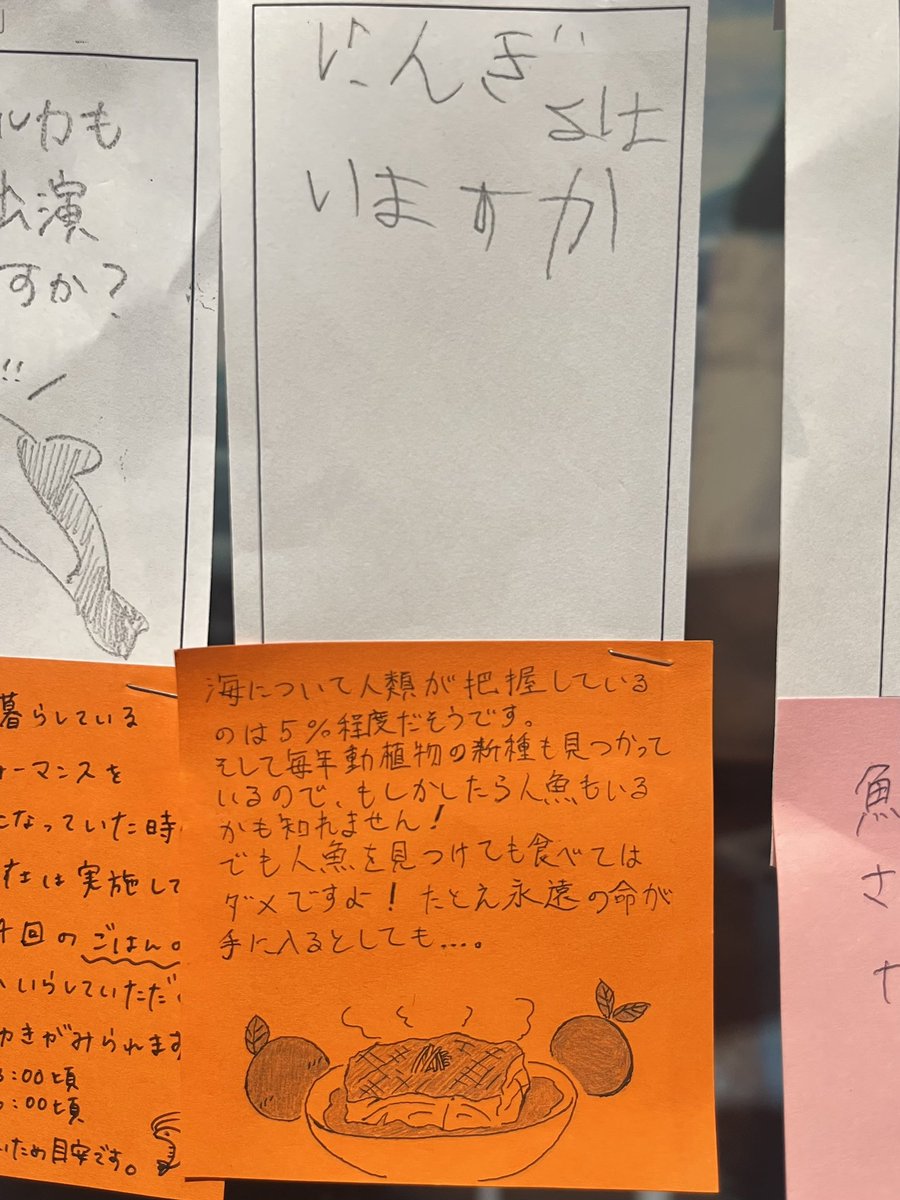 ルカも
出演
すか？
にんぎ
ょは
いますか
海について人類が把握している
のは5%程度だそうです。
そして毎年動植物の新種も見つかって
いるので、もしかしたら人魚もいる
かも知れません！
でも人魚を見つけても食べては
ダメですよ！たとえ永遠の命が
手に入るとしても…。
暮らしている
ォーマンスを
になっていた時
在は実施して
回のごはん。
いらしていただ
きがみられます
:00頃
:00頃
いため目安です。
魚
さ